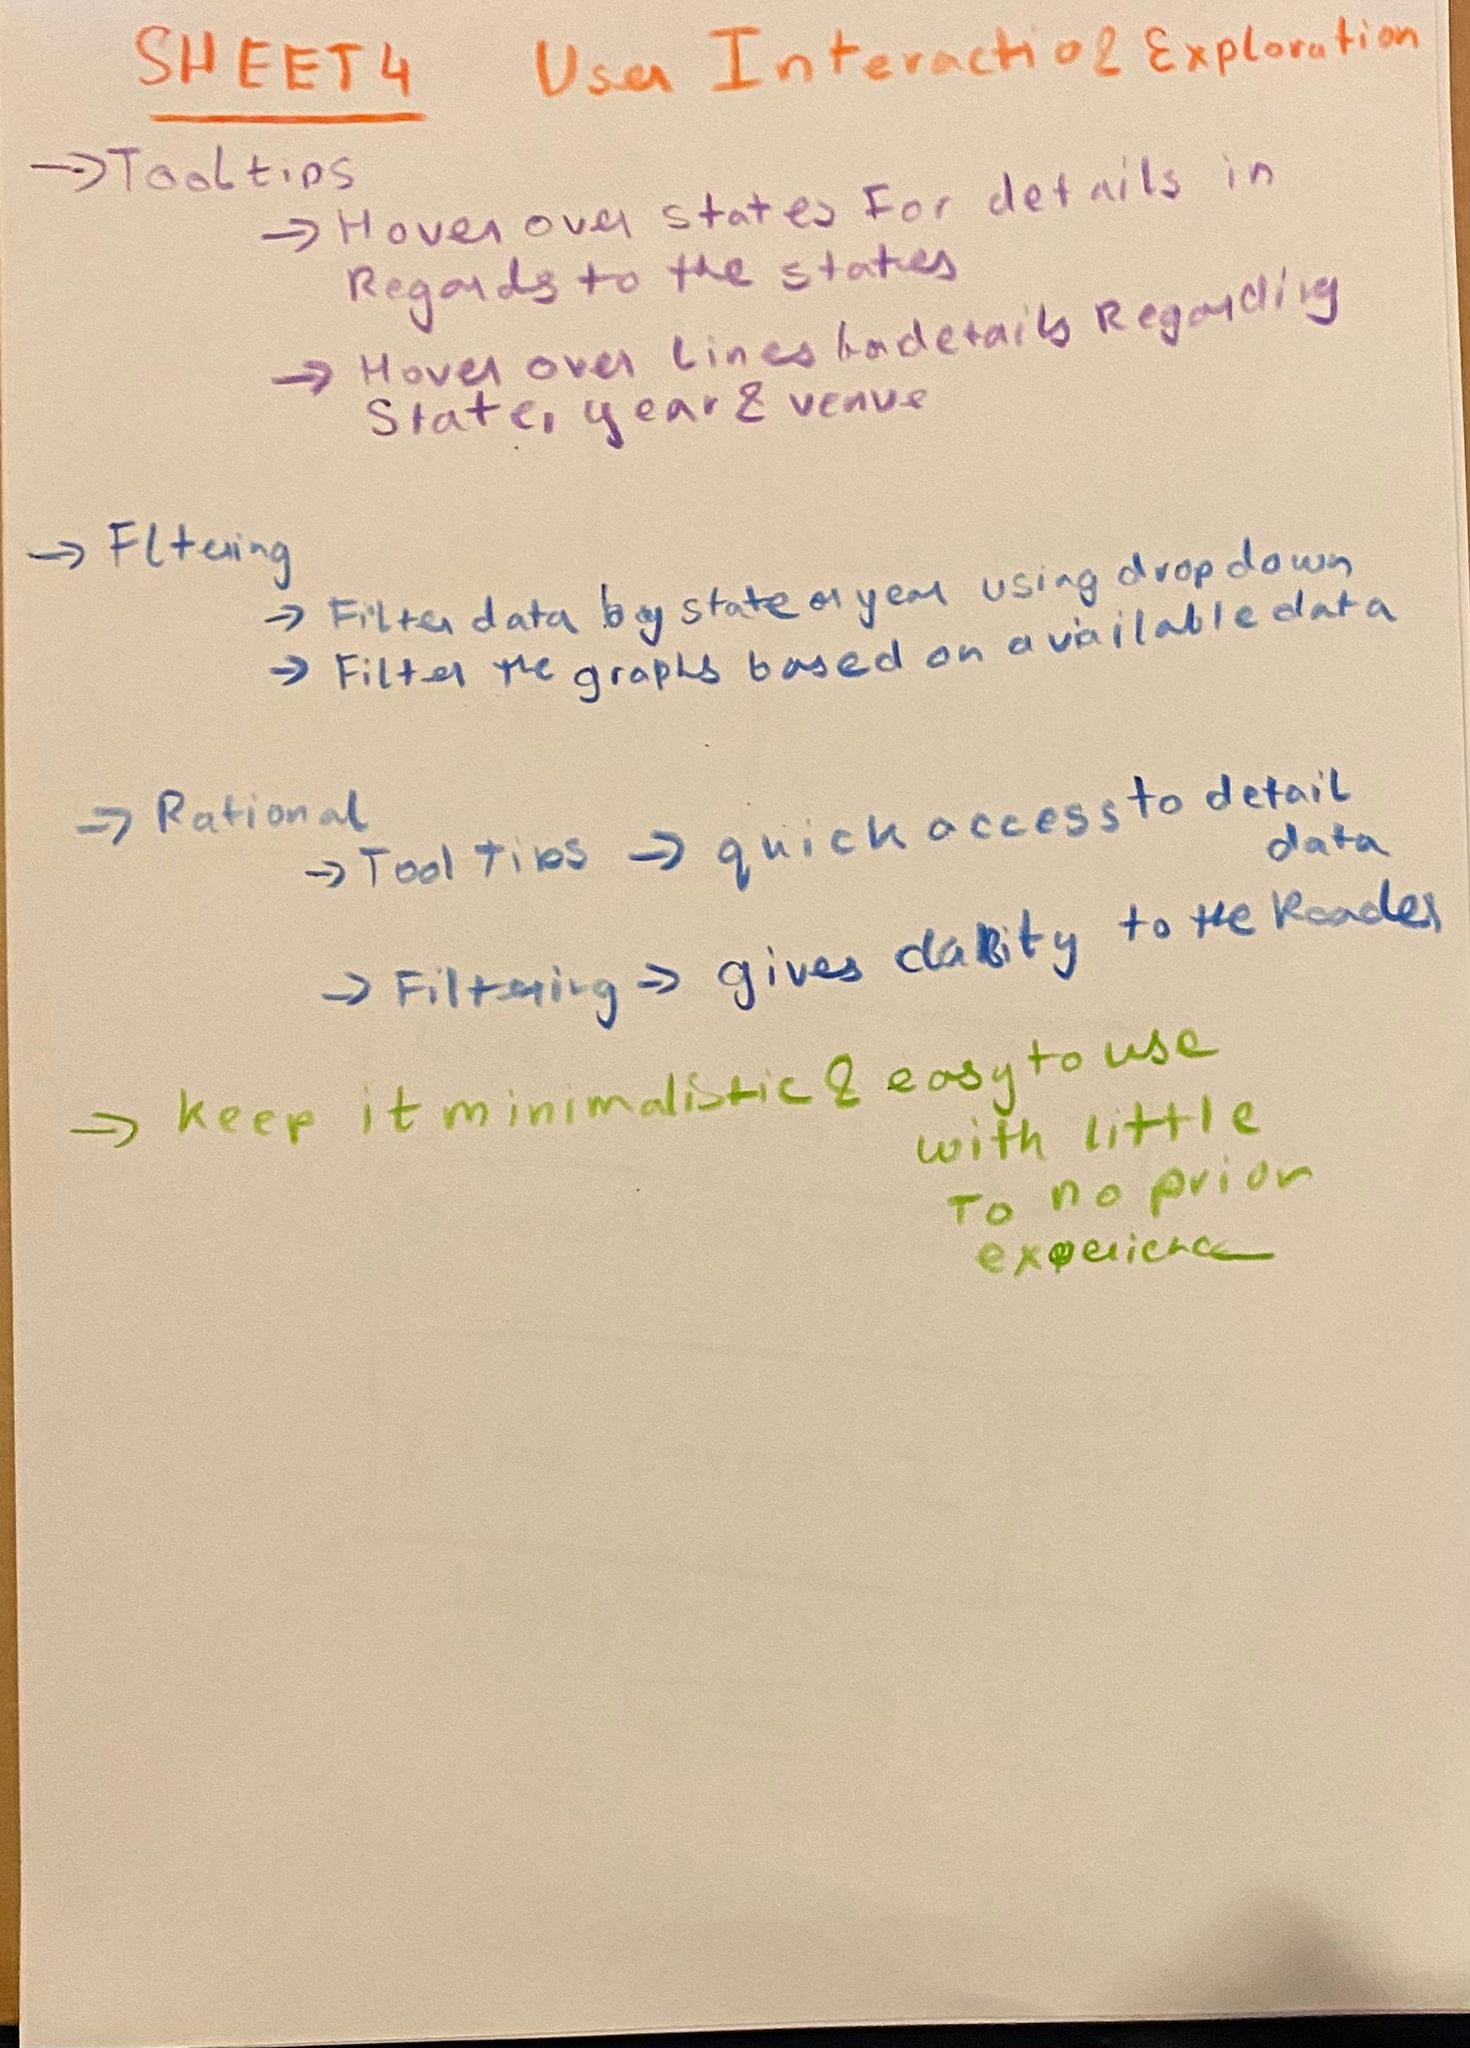 SHEET 4 User Interactio & Exploration
→ Tooltips
→ Hover over states For details in
Regards to the states
→ Hover over lines details Regarding
State, year & venue
→ Fltering
→ Filter data by state or year using drop down
→ Filter the graphs based on available data
→ Rational
→ Tool Tips → quick access to detail
data
→ Filtering → gives clarity to the Reader
→ keep it minimalistic & easy to use
with little
To no prior
experience